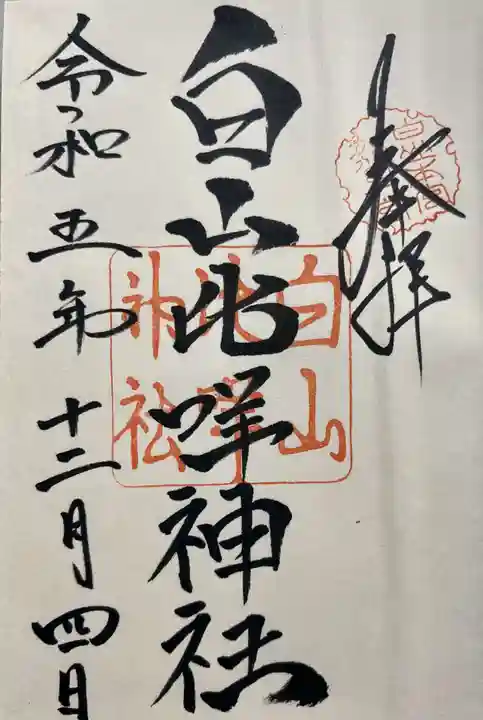 奉拝
白山比咩神社
白山
比咩
神社
令和五年十二月四日